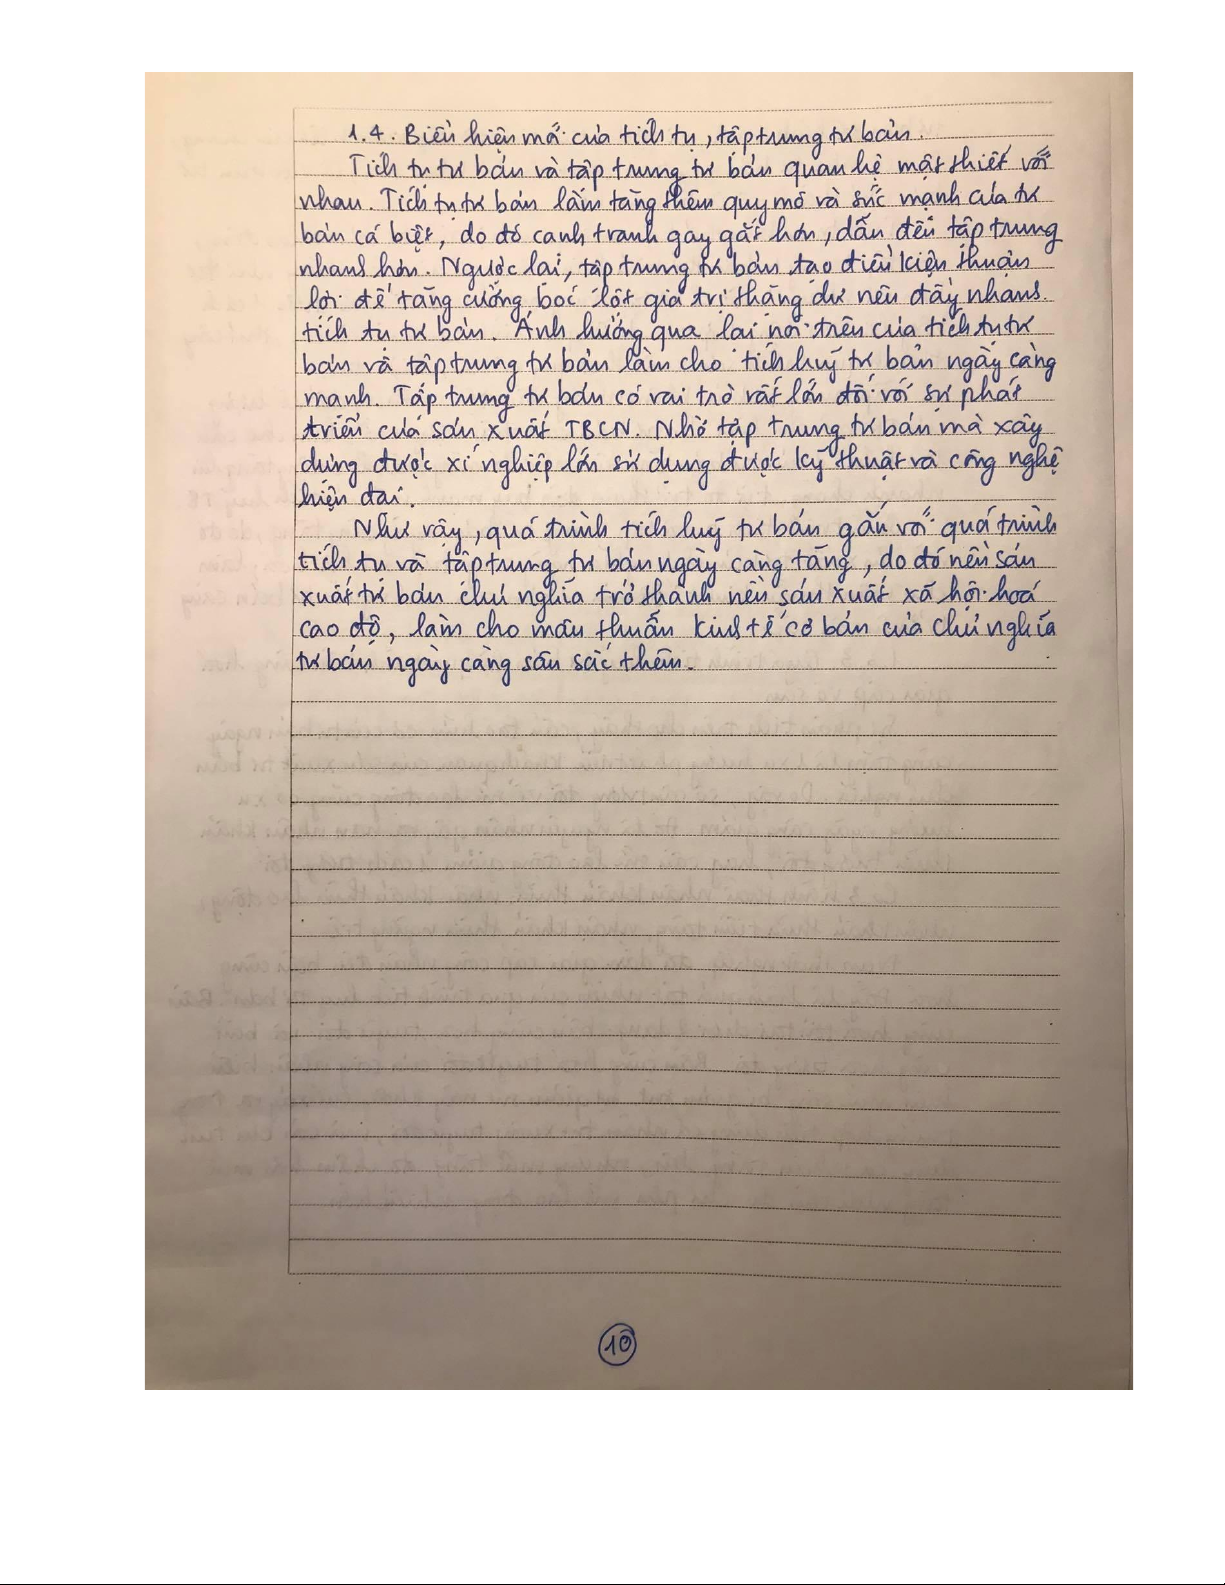 1.4. Biểu hiện mới của tích tụ, tập trung tư bản.
Tích tụ tư bản và tập trung tư bản quan hệ mật thiết với
nhau. Tích tụ tư bản làm tăng thêm quy mô và sức mạnh của tư
bản cá biệt, do đó cạnh tranh gay gắt hơn, dẫn đến tập trung
nhanh hơn. Ngược lại, tập trung tư bản tạo điều kiện thuận
lợi để tăng cường bóc lột giá trị thặng dư nên đẩy nhanh
tích tụ tư bản. Ảnh hưởng qua lại nói trên của tích tụ tư
bản và tập trung tư bản làm cho tích luỹ tư bản ngày càng
mạnh. Tập trung tư bản có vai trò rất lớn đối với sự phát
triển của sản xuất TBCN. Nhờ tập trung tư bản mà xây
dựng được xí nghiệp lớn sử dụng được kỹ thuật và công nghệ
hiện đại.
Như vậy, quá trình tích luỹ tư bản gắn với quá trình
tích tụ và tập trung tư bản ngày càng tăng, do đó nền sản
xuất tư bản chủ nghĩa trở thành nền sản xuất xã hội hoá
cao độ, làm cho mâu thuẫn kinh tế cơ bản của chủ nghĩa
tư bản ngày càng sâu sắc thêm.
10